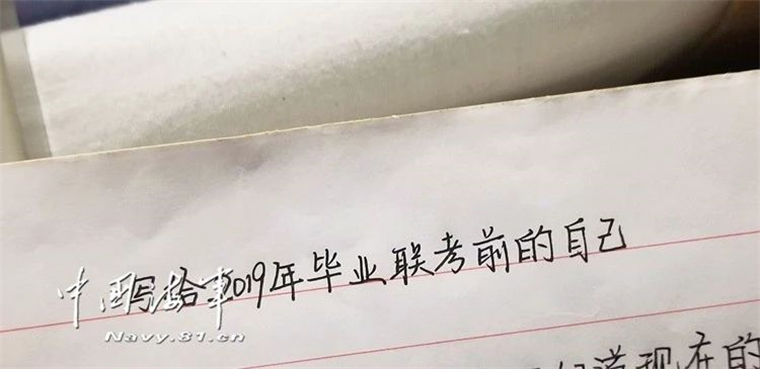 写给2019年毕业联考前的自己
中国海军
Navy.81.cn
道现在的